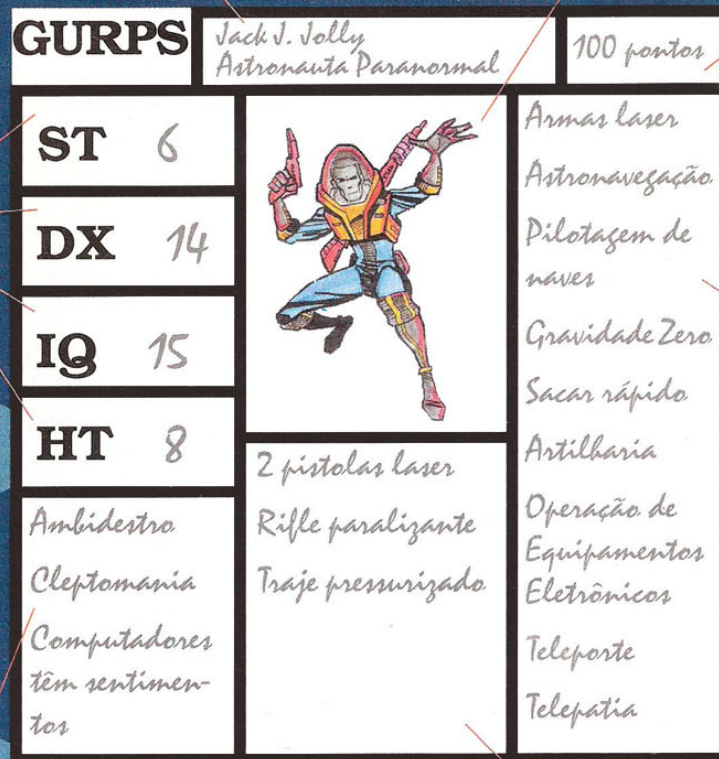 GURPS
Jack J. Jolly
Astronauta Paranormal
100 pontos
ST 6
DX 14
IQ 15
HT 8
Ambidestro
Cleptomania
Computadores
têm sentimen-
tos
2 pistolas laser
Rifle paralizante
Traje pressurizado
Armas laser
Astronavegação
Pilotagem de
naves
Gravidade Zero
Sacar rápido
Artilharia
Operação de
Equipamentos
Eletrônicos
Teleporte
Telepatia